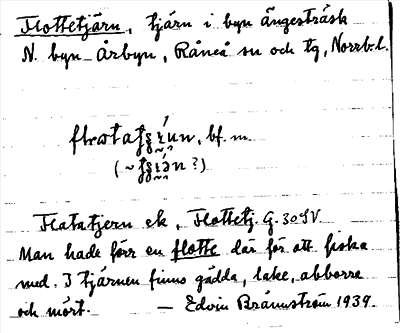 Flottetjärn, tjärn i byn Ängesträsk
N. byn Årbyn, Råneå sn och tg, Norrb. l.
bf. m.
Flatatjern ek, Flottetj. G. 30 SV
Man hade förr en flotte där för att fiska
med. I tjärnen finns gädda, lake, abborre
och mört. — Edvin Brännström 1939.